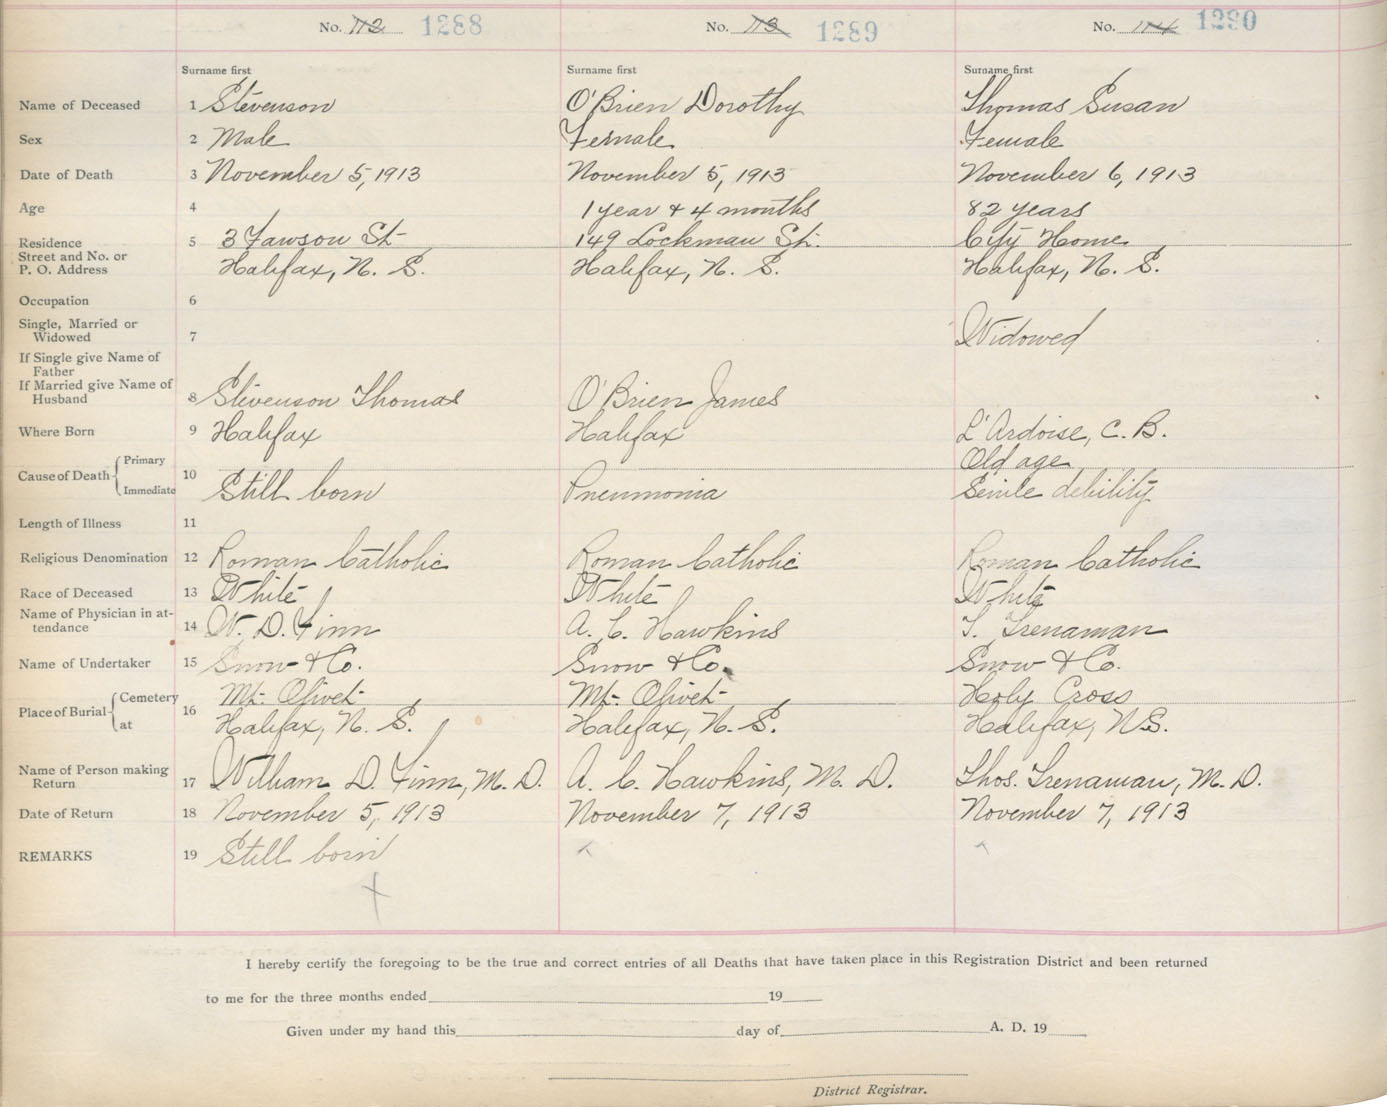 No. 112 1288 No. 113 1289 No. 114 1290
Surname first Surname first Surname first
Name of Deceased 1 Stevenson O'Brien Dorothy Thomas Susan
Sex 2 Male Female Female
Date of Death 3 November 5, 1913 November 5, 1913 November 6, 1913
Age 4 1 year & 4 months 82 years
Residence 5 3 Fawson St. 149 Lockman St. City Home
Street and No. or
P. O. Address Halifax, N. S. Halifax, N. S. Halifax, N. S.
Occupation 6
Single, Married or
Widowed 7 Widowed
If Single give Name of
Father
If Married give Name of
Husband 8 Stevenson Thomas O'Brien James
Where Born 9 Halifax Halifax L'Ardoise, C. B.
Primary Old age
Cause of Death 10
Immediate Still born Pneumonia Senile debility
Length of Illness 11
Religious Denomination 12 Roman Catholic Roman Catholic Roman Catholic
Race of Deceased 13 White White White
Name of Physician in at-
tendance 14 W. D. Finn A. C. Hawkins T. Trenaman
Name of Undertaker 15 Snow & Co. Snow & Co. Snow & Co.
Cemetery Mt. Olivet Mt. Olivet Holy Cross
Place of Burial 16
at Halifax, N. S. Halifax, N. S. Halifax, N.S.
Name of Person making
Return 17 William D. Finn, M. D. A. C. Hawkins, M. D. Thos. Trenaman, M. D.
Date of Return 18 November 5, 1913 November 7, 1913 November 7, 1913
REMARKS 19 Still born
I hereby certify the foregoing to be the true and correct entries of all Deaths that have taken place in this Registration District and been returned
to me for the three months ended 19
Given under my hand this day of A. D. 19
District Registrar.